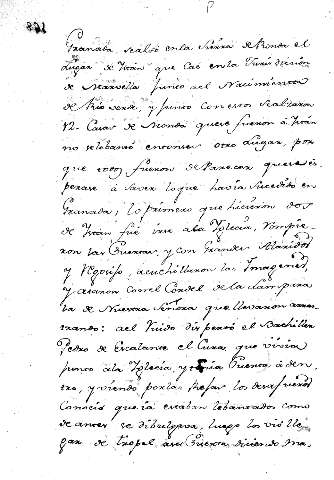 Granada se alzó en la Sierra de Ronda el
Lugar de Istán que cae en la Jurisdicion
de Marvella junto al Nacimiento
de Rio verde, y junto con esso se alzaron
12 Casas de que se fueron à Istán
no se lebantó entonces otro Lugar, por
que todos fueron de Parecer que se es-
perase à saver lo que havia sucedido en
Granada; lo primero que hicieron los
de Istan fue irse ala Yglecia, Rompie-
ron las Puertas, y con Grandes Alaridos
y Regocijo, acuchillaron las Imagenes,
y ataron con el Cordel de la Lampara
la de Nuestra Señora que llevaron arras-
trando: al Ruido dispertó el Bachiller
Pedro de Escalante el Cura, que vivia
junto ala Yglecia, y tenia Puerta à den-
tro, y viendo por las Rejas los desafueros
Conoció que ià estaban lebantados como
de antes se dibulgava, luego los vió lle-
gar de tropel, à su Puerta diciendo Ma-